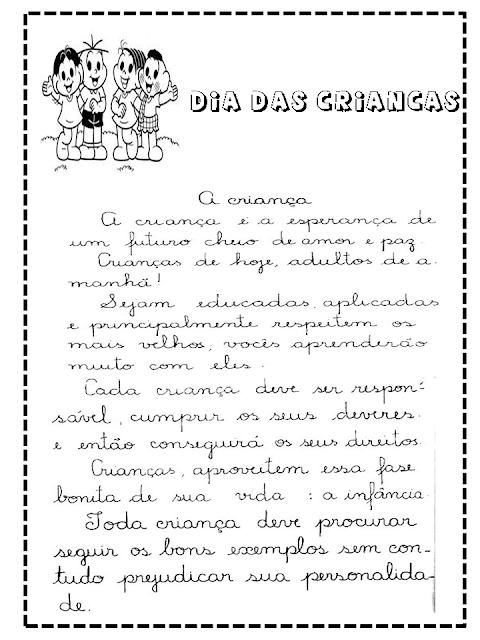 DIA DAS CRIANCAS
A criança
A criança é a esperança de
um futuro cheio de amor e paz.
Crianças de hoje, adultos de a-
manhã!
Sejam educadas, aplicadas
e principalmente respeitem os
mais velhos, vocês aprenderão
muito com eles.
Cada criança deve ser respon-
sável, cumprir os seus deveres
e então conseguirá os seus direitos.
Crianças, aproveitem essa fase
bonita de sua vida : a infância
Toda criança deve procurar
seguir os bons exemplos sem con-
tudo prejudicar sua personalida-
de.